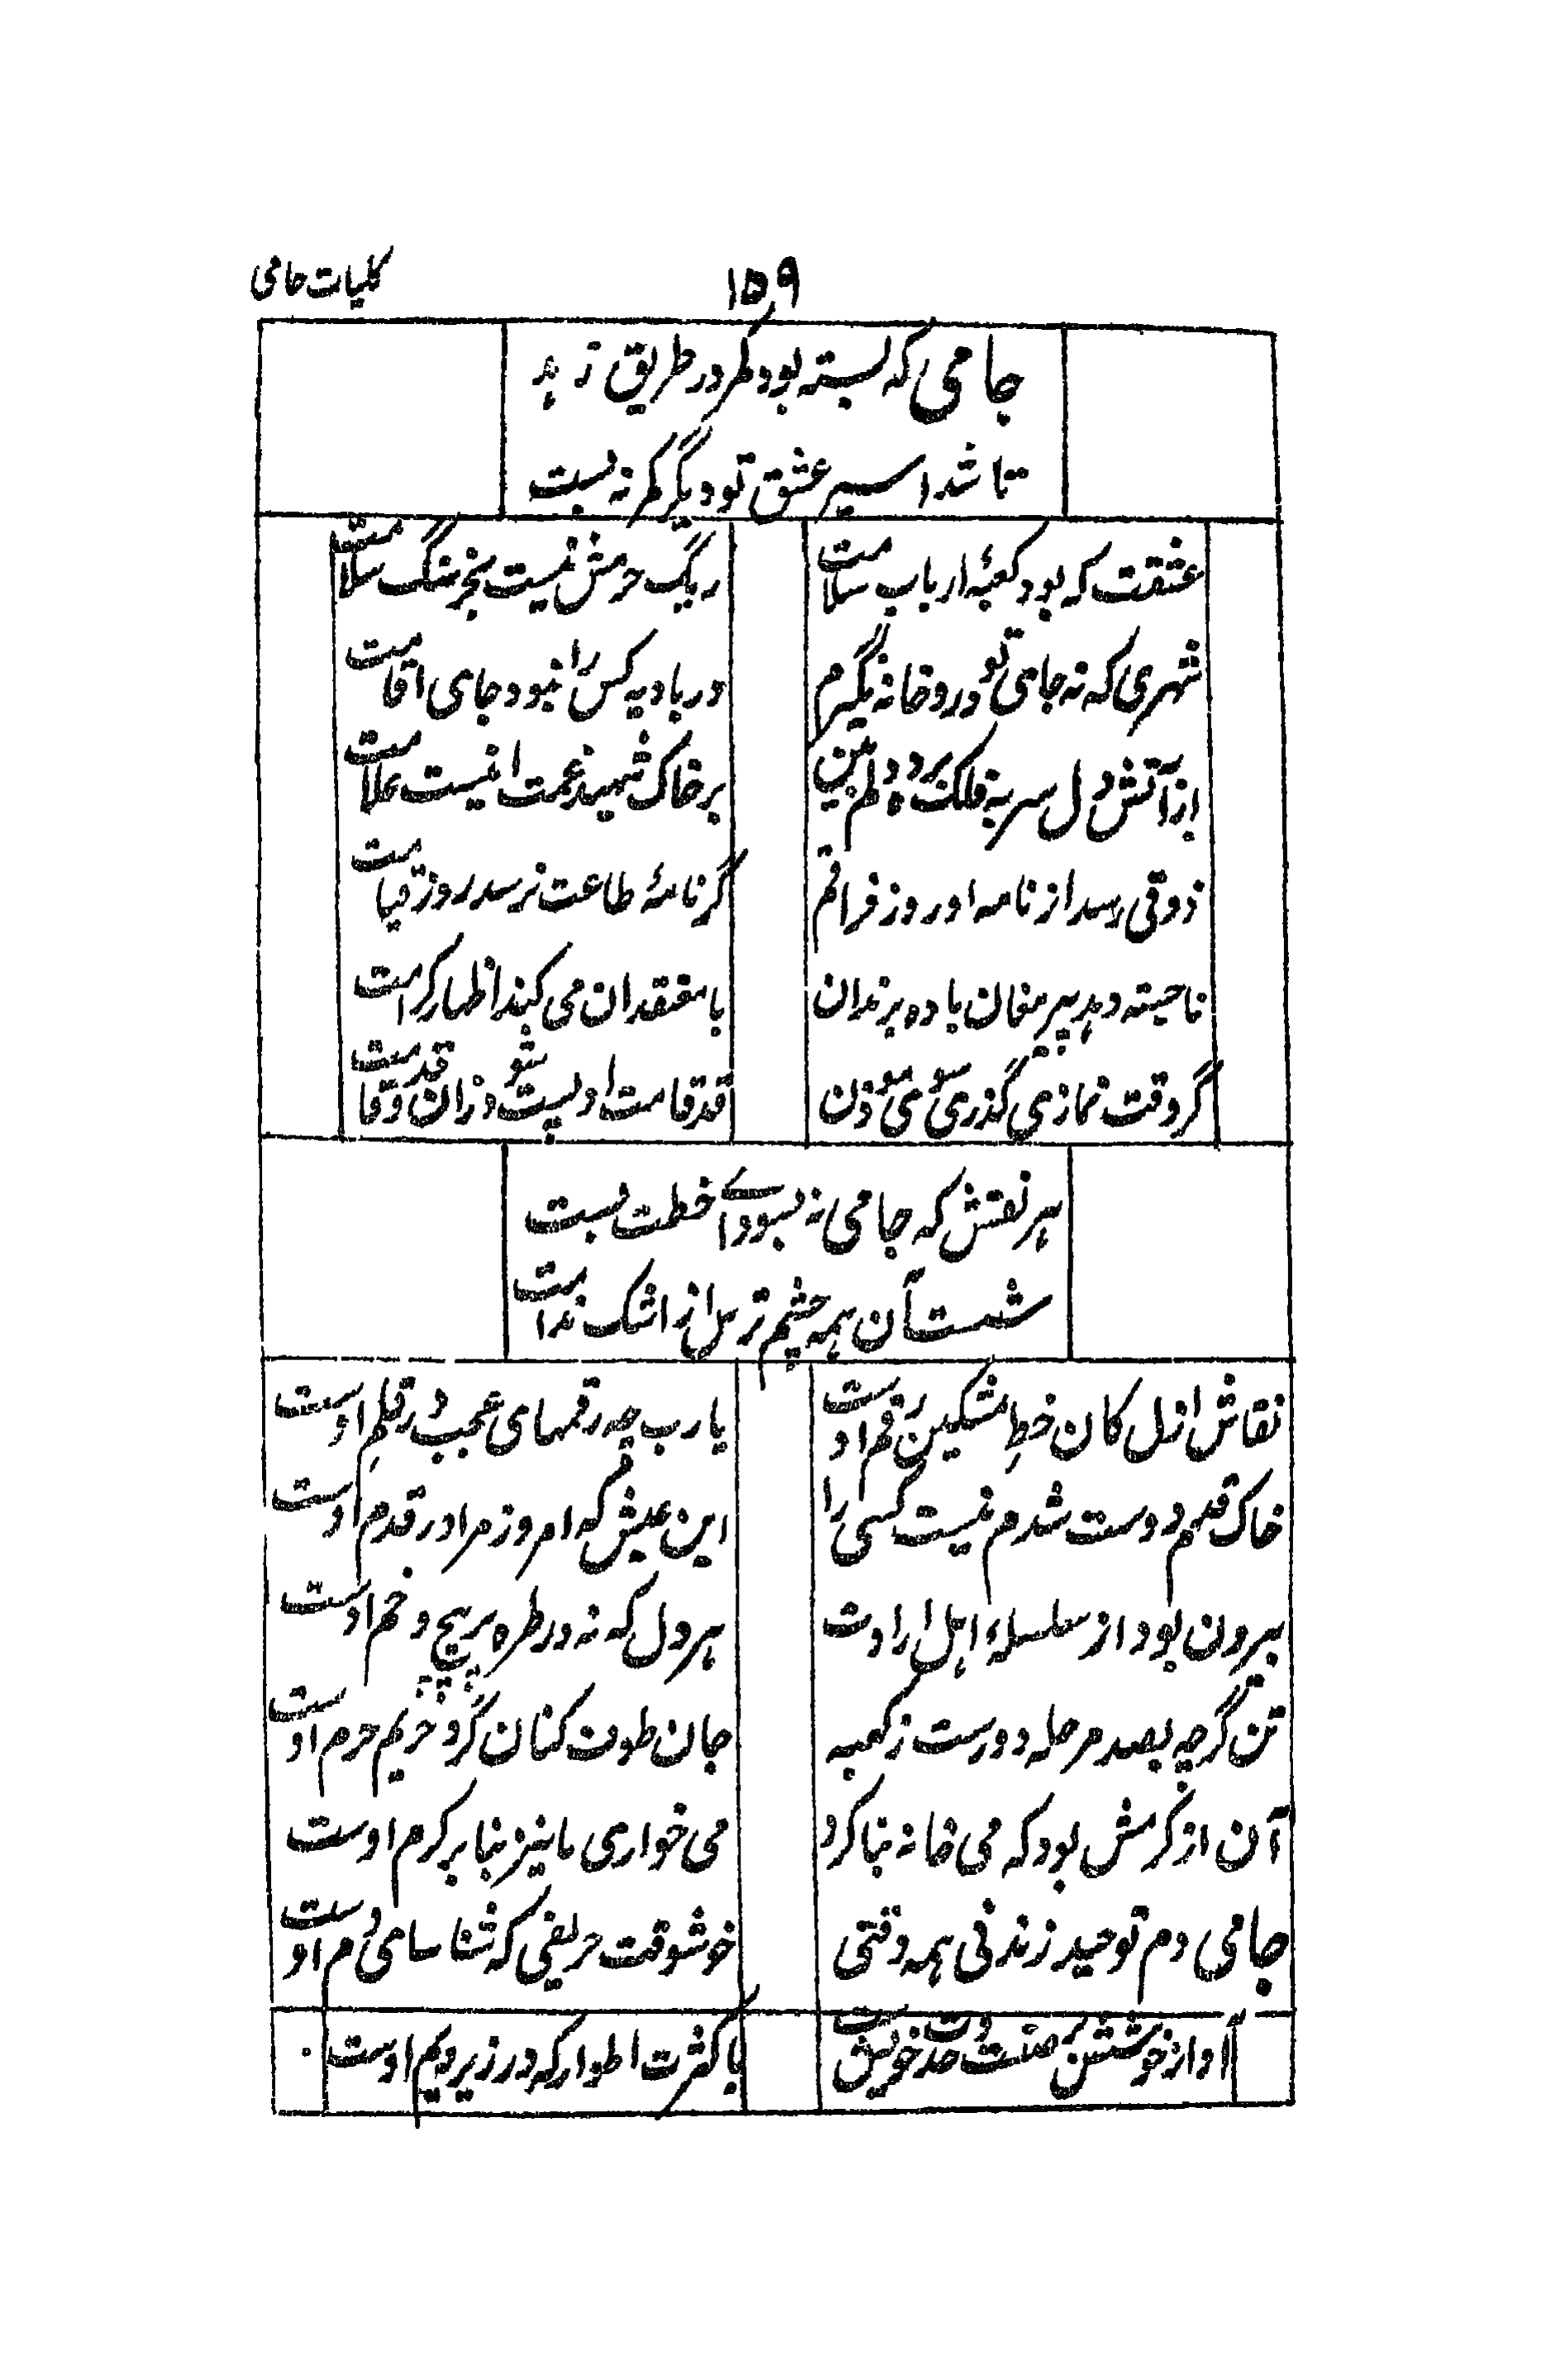 کلیات جامی
۱۵۹
جامی که بسته بود کمر در طریق زهد
تا شد اسیر عشق تو دیگر کمر نه بست
عشقت که بود کعبهٔ ارباب سلامت
ریگ حرمش نیست بجز سنگ سلامت
شهری که نه جای تو درو خانه نگیرم
در بادیه کس را نبود جای اقامت
از آتش دل سر به فلک برده دلم بین
بر خاک شهید غمت ا نیست علامت
ذوقی رسد از نامه او روز فراقم
گر نامهٔ طاعت نرسد روز قیامت
ناحیته دهد پیر مغان باده برندان
با معتقدان می کند اظهار کرامت
گر وقت نمازی گذری سوی موذن
قد قامت او پست شو وزان قد وقامت
هر نقش که جامی نه بسودای خطت بست
شست آن همه چشم ترش از اشک ندامت
نقاش ازل کان خطِ مشکین رقم اوست
یارب چه رقمهای عجب در قلمِ اوست
خاک قدم دوست شدم نیست کسی را
این عیش که امروز مرا در قدم اوست
بیرون بود از سلسلهٔ اهل ارادت
هر دل که نه در طره پرپیچ و خم اوست
تن گرچه بصد مرحله دورست ز کعبه
جان طوف کنان گرد حریم حرم اوست
آن از کرمش بود که می خانه بنا کرد
می خواری ما نیز بنا بر کرم اوست
جامی دم توحید زند نی همه وقتی
خوشوقت حریفی که شناسای دم اوست
آواز خوشش بر صفت وحدت خویش است
با کثرت اطوار که در زیر و بم اوست